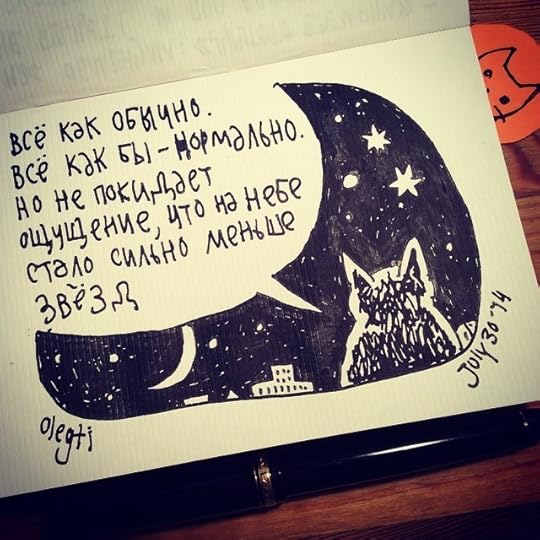 всё как обычно.
всё как бы – нормально.
но не покидает
ощущение, что на небе
стало сильно меньше
звёзд
July 30 '14
olegti